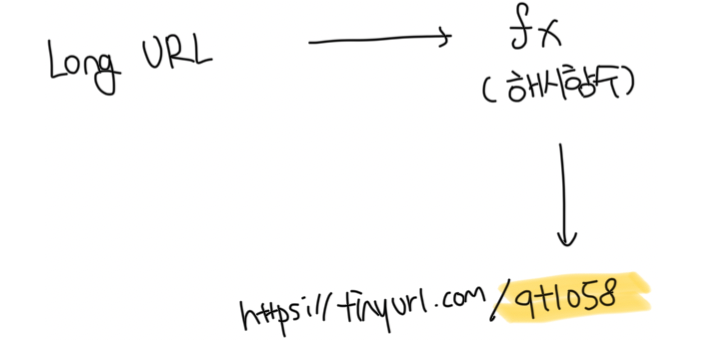 Long URL
fx
(해시함수)
https://tinyurl.com/qtlo58